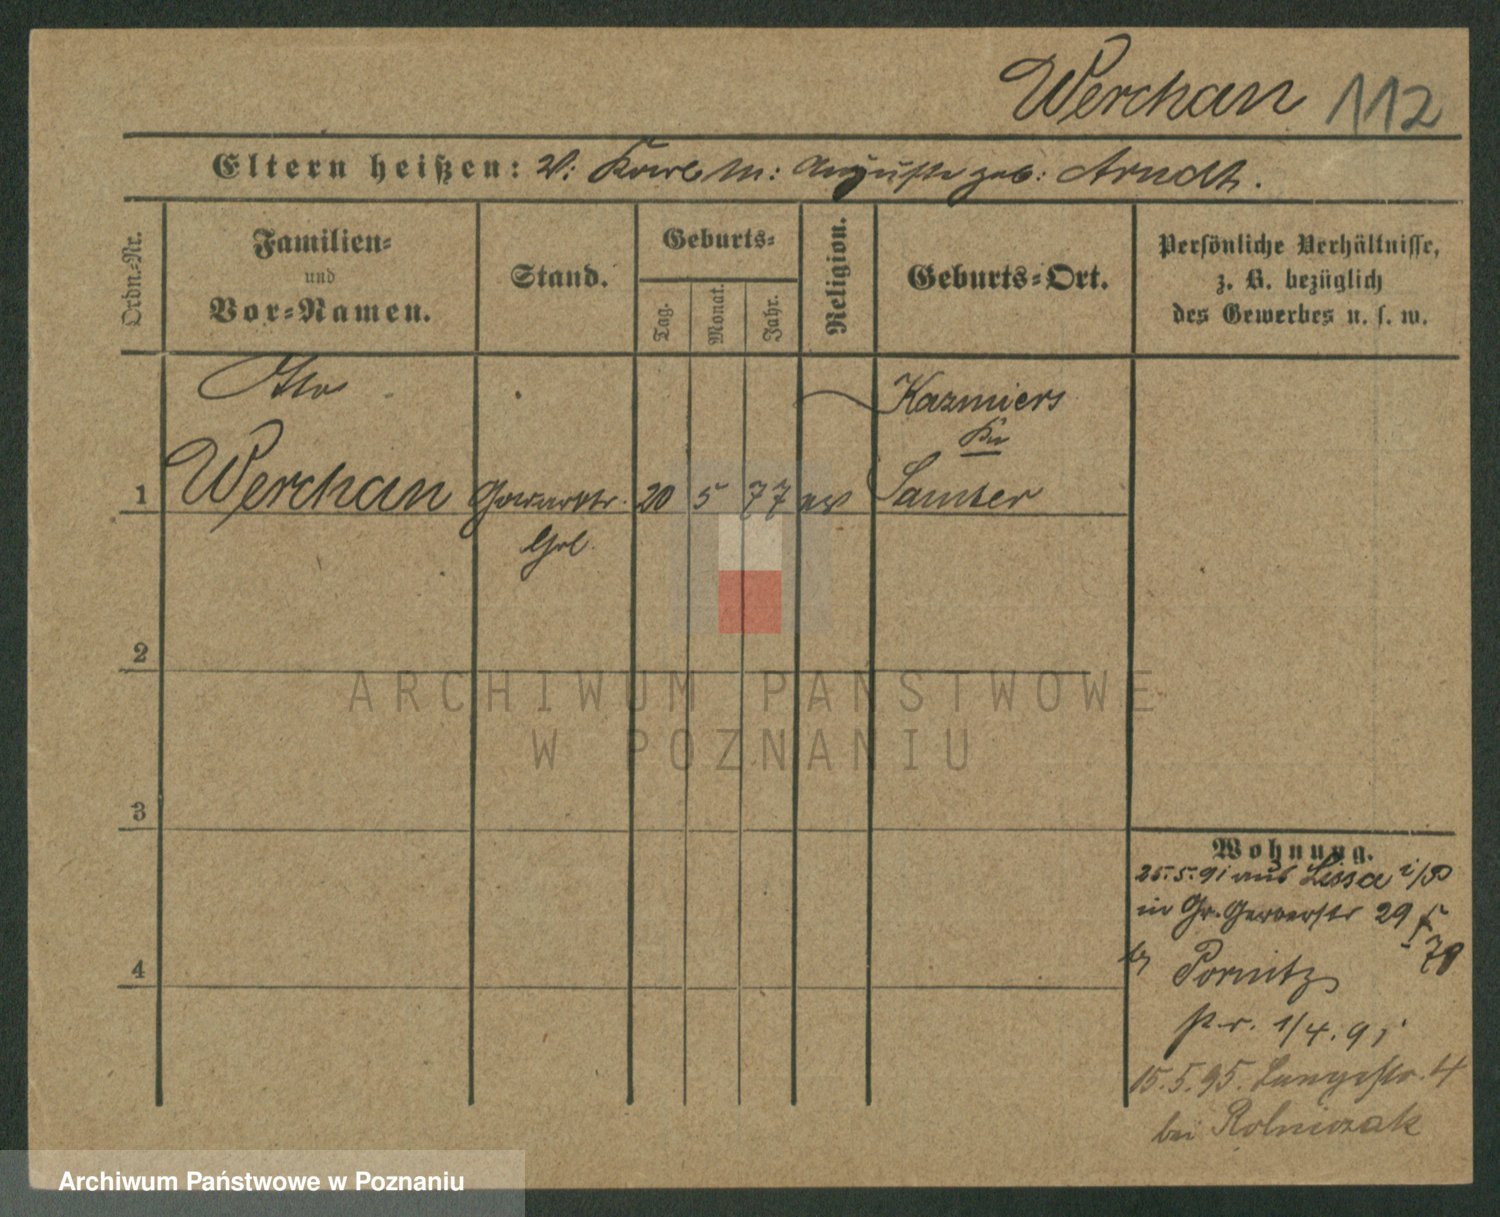 Werchan 112
Eltern heißen: V: Karl M: Auguste geb: Arndt.
Ordn.-Nr.
Familien-
und
Vor-Namen.
Stand.
Geburts-
Tag.
Monat.
Jahr.
Religion.
Geburts-Ort.
Persönliche Verhältnisse,
z. B. bezüglich
des Gewerbes u. s. w.
Otto
Kazmiers
Kr
1 Werchan 20 5 77 ev Samter
2
3
4
ARCHIWUM PAŃSTWOWE
W POZNANIU
Wohnung.
25.5.91 aus Lissa i/P
in Gr. Gerberstr 29
b/ Pornitz
1/4.91
15.5.95. Langestr. 4
bei Rolniczak
Archiwum Państwowe w Poznaniu